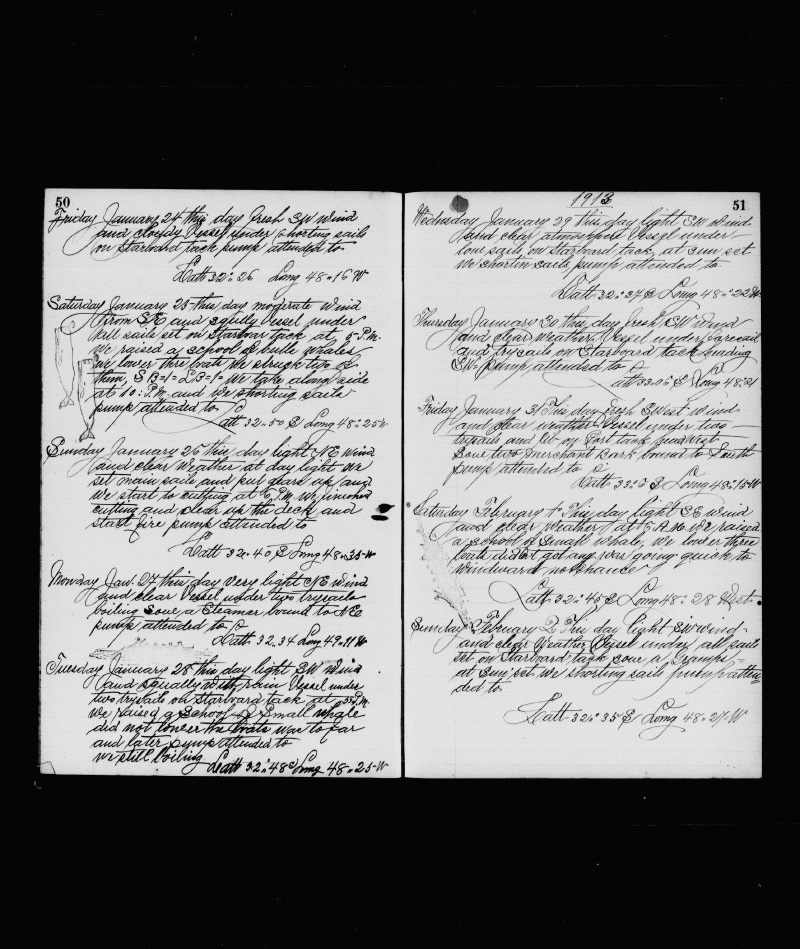 50
Friday January 24 this day fresh SW wind
and cloudy Vessel under shorting sails
on Starboard tack pump attended to
Latt 32:26 Long 48:16 W
Saturday January 25 this day moderate wind
from SE and sqully Vessel under
all sails set on Starbour tack at 5 P.M.
We raised a school of bulls whales
we lower three boats We struck two of
them, SB=1= LB=1= We take along side
at 10: P.M and we shorting sails
pump attended to
Latt 32:50 S Long 48:25 W
Sunday January 26 this day light NE wind
and clear Weather at day light we
set main sails and put gears up and
We start to cutting at 6 P.M we finished
cutting and clear up the deck and
start fire pump attended to
Latt 32:40 S Long 48:35 W
Monday Jan. 27 this day Very light NE wind
and clear Vessel under two trysails
boiling Soue a Steamer bound to NE
pump attended to
Latt 32.34 Long 49:11 W
Tuesday January 28 this day light SW wind
and squally with rain Vessel under
two trysails on Starboard tack at P.M
We raised a School of Small whale
did not lower the boats was to far
and later pump attended to
we still boiling
Latt 32:48 S Long 48:25 W
1913
51
Wednesday January 29 this day light SW wind
and clear atmosphere Vessel under
low sails on Starboard tack, at sun set
We shortin sails pump attended to
Latt 32:37 S Long 48:22 W
Thursday January 30 this day fresh SW wind
and clear weather Vessel under foresail
and trysails on Starboard tack
SW pump attended to
Latt 33:06 S Long 48:21
Friday January 31 This day fresh SWest wind
and clear weather Vessel under two
trysails and jib on Port tack West
Soue two merchant Bark bound to South
pump attended to
Latt 33:5 S Long 48:15 W
Saturday February 1 This day light SE wind
and clear weather, at 5 A.M We raised
a school of Small whale, we lower three
boats did'nt got any was going quick to
windward no chance
Latt 32:45 S Long 48: 28 West.
Sunday February 2 This day light SW wind
and clear Weather Vessel under all sails
set on Starboard tack Soue a Tramps
at Sun set We shorting sails pump atten
ded to
Latt 32:35 S Long 48-27-W